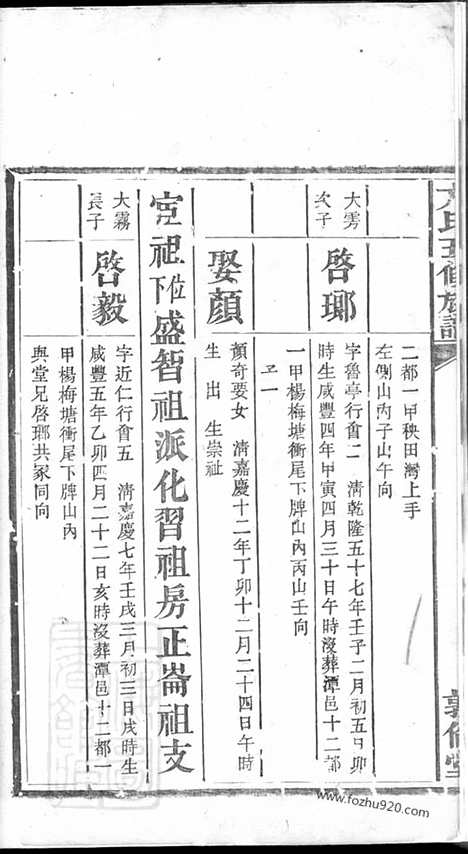 氏五修族譜
敦倫堂
二都一甲秧田灣上手
左側山丙子山午向
大雱
次子
啓瑯
字魯亭行會二　清乾隆五十七年壬子二月初五日卯
時生咸豐四年甲寅四月三十日午時沒葬潭邑十二都
一甲楊梅塘衝尾下牌山內丙山壬向
子一
娶顏
顏奇要女　清嘉慶十二年丁卯十二月二十四日午時
生　出　生崇祉
宦祖位下盛智祖派化習祖房正崙祖支
大霧
長子
啓毅
字近仁行會五　清嘉慶七年壬戌三月初三日戌時生
咸豐五年乙卯四月二十二日亥時沒葬潭邑十二都一
甲楊梅塘衝尾下牌山內
與堂兄啓瑯共冢同向
www.fozhu920.com